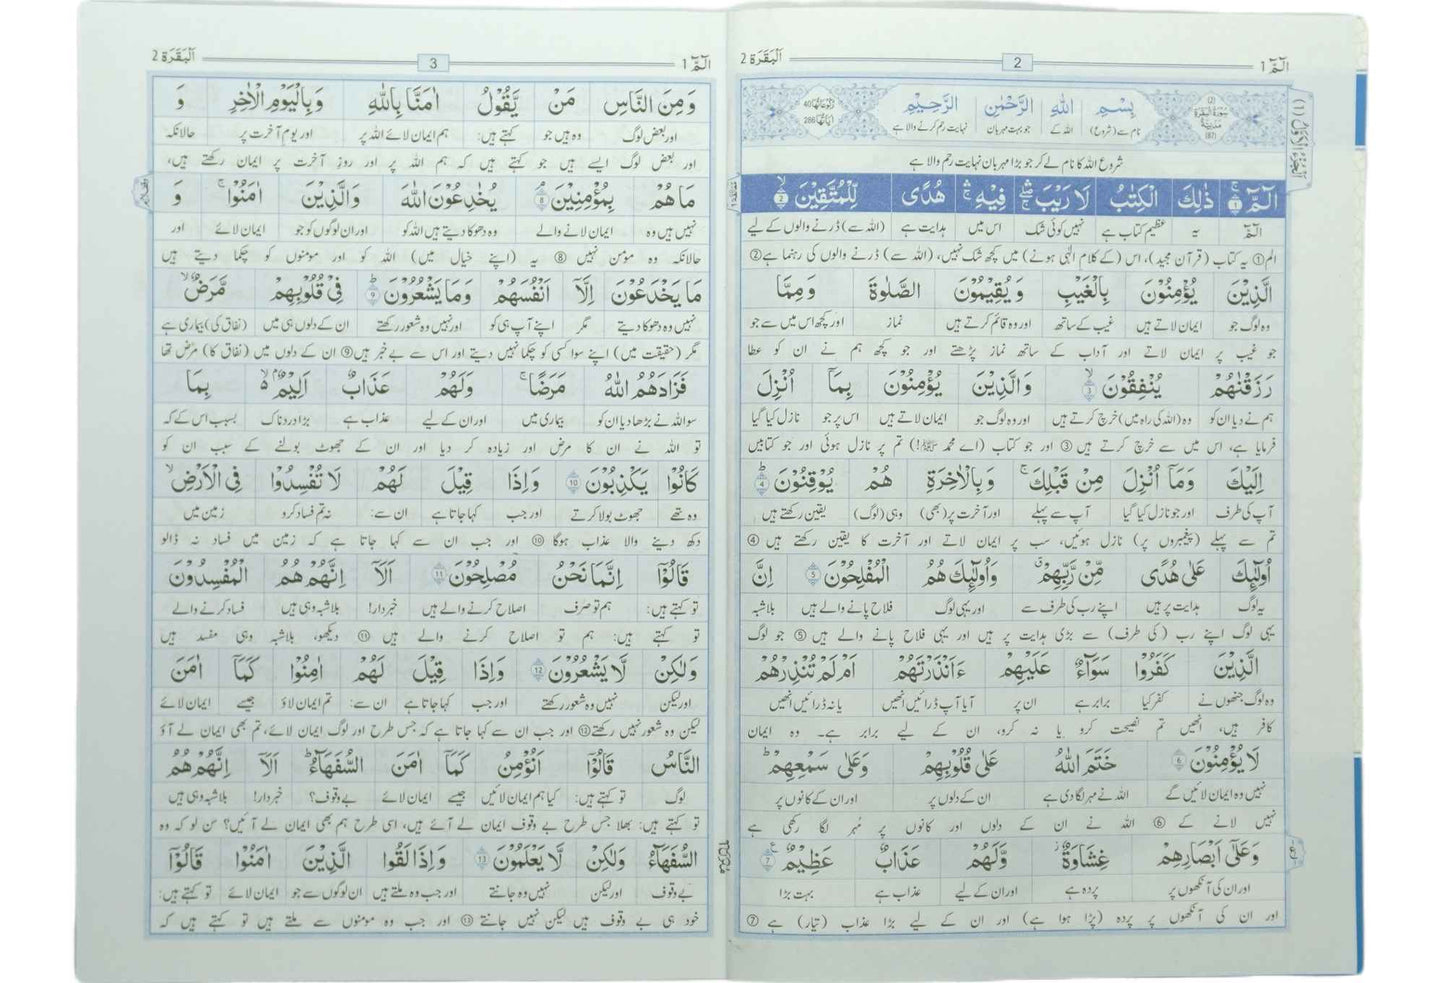 الٓمّٓ 1
2
اَلْبَقَرَة 2
(2) سُوْرَةُ الْبَقَرَةِ مَدَنِيَّةٌ (87)
بِسْمِ اللّٰهِ الرَّحْمٰنِ الرَّحِيْمِ
رُكُوْعَاتُهَا 40
اٰيَاتُهَا 286
نام سے (شروع) اللہ کے جو بہت مہربان نہایت رحم کرنے والا ہے
شروع اللہ کا نام لے کر جو بڑا مہربان نہایت رحم والا ہے
الٓمّٓ ۚ 1 ذٰلِكَ الْكِتٰبُ لَا رَيْبَ ۛۖ فِيْهِ ۛۚ هُدًى لِّلْمُتَّقِيْنَ ۙ 2
الم یہ عظیم کتاب ہے نہیں کوئی شک اس میں ہدایت ہے (اللہ سے) ڈرنے والوں کے لیے
الم① یہ کتاب (قرآن مجید)، اس (کے کلام الٰہی ہونے) میں کچھ شک نہیں، (اللہ سے) ڈرنے والوں کی رہنما ہے②
الَّذِيْنَ يُؤْمِنُوْنَ بِالْغَيْبِ وَ يُقِيْمُوْنَ الصَّلٰوةَ وَ مِمَّا
وہ لوگ جو ایمان لاتے ہیں غیب کے ساتھ اور وہ قائم کرتے ہیں نماز اور کچھ اس میں سے جو
جو غیب پر ایمان لاتے اور آداب کے ساتھ نماز پڑھتے اور جو کچھ ہم نے ان کو عطا
رَزَقْنٰهُمْ يُنْفِقُوْنَ ۙ 3 وَ الَّذِيْنَ يُؤْمِنُوْنَ بِمَاۤ اُنْزِلَ
ہم نے دیا ان کو وہ (اللہ کی راہ میں) خرچ کرتے ہیں اور وہ لوگ جو ایمان لاتے ہیں اس پر جو نازل کیا گیا
فرمایا ہے، اس میں سے خرچ کرتے ہیں ③ اور جو کتاب (اے محمد ﷺ!) تم پر نازل ہوئی اور جو کتابیں
اِلَيْكَ وَمَاۤ اُنْزِلَ مِنْ قَبْلِكَ ۚ وَ بِالْاٰخِرَةِ هُمْ يُوْقِنُوْنَ ؕ 4
آپ کی طرف اور جو نازل کیا گیا آپ سے پہلے اور آخرت پر (بھی) وہی (لوگ) یقین رکھتے ہیں
تم سے پہلے (پیغمبروں پر) نازل ہوئیں، سب پر ایمان لاتے اور آخرت کا یقین رکھتے ہیں ④
اُولٰٓئِكَ عَلٰى هُدًى مِّنْ رَّبِّهِمْ ۗ وَاُولٰٓئِكَ هُمُ الْمُفْلِحُوْنَ 5 اِنَّ
یہ لوگ ہدایت پر ہیں اپنے رب کی طرف سے اور یہی لوگ فلاح پانے والے ہیں بلاشبہ
یہی لوگ اپنے رب (کی طرف) سے بڑی ہدایت پر ہیں اور یہی فلاح پانے والے ہیں ⑤ جو لوگ
الَّذِيْنَ كَفَرُوْا سَوَآءٌ عَلَيْهِمْ ءَاَنْذَرْتَهُمْ اَمْ لَمْ تُنْذِرْهُمْ
وہ لوگ جنھوں نے کفر کیا برابر ہے ان پر آیا آپ ڈرائیں انھیں یا نہ ڈرائیں انھیں
کافر ہیں، انھیں تم نصیحت کرو یا نہ کرو، ان کے لیے برابر ہے۔ وہ ایمان
لَا يُؤْمِنُوْنَ 6 خَتَمَ اللّٰهُ عَلٰى قُلُوْبِهِمْ وَعَلٰى سَمْعِهِمْ ؕ
نہیں وہ ایمان لائیں گے اللہ نے مہر لگا دی ہے ان کے دلوں پر اور ان کے کانوں پر
نہیں لانے کے ⑥ اللہ نے ان کے دلوں اور کانوں پر مُہر لگا رکھی ہے
وَعَلٰۤى اَبْصَارِهِمْ غِشَاوَةٌ ؗ وَّلَهُمْ عَذَابٌ عَظِيْمٌ 7
اور ان کی آنکھوں پر پردہ ہے اور ان کے لیے عذاب ہے بہت بڑا
اور ان کی آنکھوں پر پردہ (پڑا ہوا ہے) اور ان کے لیے بڑا عذاب (تیار) ہے ⑦
الٓمّٓ 1
3
اَلْبَقَرَة 2
وَ مِنَ النَّاسِ مَنْ يَّقُوْلُ اٰمَنَّا بِاللّٰهِ وَ بِالْيَوْمِ الْاٰخِرِ وَ
اور بعض لوگ وہ ہیں جو کہتے ہیں: ہم ایمان لائے اللہ پر اور یوم آخرت پر حالانکہ
اور بعض لوگ ایسے ہیں جو کہتے ہیں کہ ہم اللہ پر اور روزِ آخرت پر ایمان رکھتے ہیں،
مَا هُمْ بِمُؤْمِنِيْنَ ۘ 8 يُخٰدِعُوْنَ اللّٰهَ وَالَّذِيْنَ اٰمَنُوْا ۚ وَ
نہیں ہیں وہ ایمان لانے والے وہ دھوکا دیتے ہیں اللہ کو اور ان لوگوں کو جو ایمان لائے اور
حالانکہ وہ مؤمن نہیں ⑧ یہ (اپنے خیال میں) اللہ کو اور مومنوں کو چکما دیتے ہیں
مَا يَخْدَعُوْنَ اِلَّاۤ اَنْفُسَهُمْ وَمَا يَشْعُرُوْنَ ؕ 9 فِيْ قُلُوْبِهِمْ مَّرَضٌ ۙ
نہیں وہ دھوکا دیتے مگر اپنے آپ ہی کو اور نہیں وہ شعور رکھتے ان کے دلوں ہی میں (نفاق کی) بیماری ہے
مگر (حقیقت میں) اپنے سوا کسی کو چکما نہیں دیتے اور اس سے بے خبر ہیں⑨ ان کے دلوں میں (نفاق کا) مرض تھا
فَزَادَهُمُ اللّٰهُ مَرَضًا ۚ وَلَهُمْ عَذَابٌ اَلِيْمٌ ۢ ۙ بِمَا
سو اللہ نے بڑھا دیا ان کو بیماری میں اور ان کے لیے عذاب ہے بڑا دردناک بسبب اس کے کہ
تو اللہ نے ان کا مرض اور زیادہ کر دیا اور ان کے جھوٹ بولنے کے سبب ان کو
كَانُوْا يَكْذِبُوْنَ 10 وَ اِذَا قِيْلَ لَهُمْ لَا تُفْسِدُوْا فِي الْاَرْضِ ۙ
وہ تھے جھوٹ بولا کرتے اور جب کہا جاتا ہے ان سے: نہ تم فساد کرو زمین میں
دکھ دینے والا عذاب ہوگا ⑩ اور جب ان سے کہا جاتا ہے کہ زمین میں فساد نہ ڈالو
قَالُوْۤا اِنَّمَا نَحْنُ مُصْلِحُوْنَ 11 اَلَاۤ اِنَّهُمْ هُمُ الْمُفْسِدُوْنَ
تو کہتے ہیں: ہم تو صرف اصلاح کرنے والے ہیں خبردار! بلاشبہ وہی ہیں فساد کرنے والے
تو کہتے ہیں: ہم تو اصلاح کرنے والے ہیں ⑪ دیکھو، بلاشبہ وہی مفسد ہیں
وَلٰكِنْ لَّا يَشْعُرُوْنَ 12 وَ اِذَا قِيْلَ لَهُمْ اٰمِنُوْا كَمَاۤ اٰمَنَ
اور لیکن نہیں وہ شعور رکھتے اور جب کہا جاتا ہے ان سے: تم ایمان لاؤ جیسے ایمان لائے
لیکن وہ شعور نہیں رکھتے⑫ اور جب ان سے کہا جاتا ہے کہ جس طرح اور لوگ ایمان لائے، تم بھی ایمان لے آؤ
النَّاسُ قَالُوْۤا اَنُؤْمِنُ كَمَاۤ اٰمَنَ السُّفَهَآءُ ؕ اَلَاۤ اِنَّهُمْ هُمُ
لوگ تو کہتے ہیں: کیا ہم ایمان لائیں جیسے ایمان لائے بے وقوف؟ خبردار! بلاشبہ وہی ہیں
تو کہتے ہیں: بھلا جس طرح بے وقوف ایمان لے آئے ہیں، اسی طرح ہم بھی ایمان لے آئیں؟ سن لو کہ وہ
السُّفَهَآءُ وَلٰكِنْ لَّا يَعْلَمُوْنَ 13 وَ اِذَا لَقُوا الَّذِيْنَ اٰمَنُوْا قَالُوْۤا
بے وقوف اور لیکن نہیں وہ جانتے اور جب وہ ملتے ہیں ان لوگوں سے جو ایمان لائے تو کہتے ہیں:
خود ہی بے وقوف ہیں لیکن نہیں جانتے ⑬ اور جب وہ مومنوں سے ملتے ہیں تو کہتے ہیں کہ